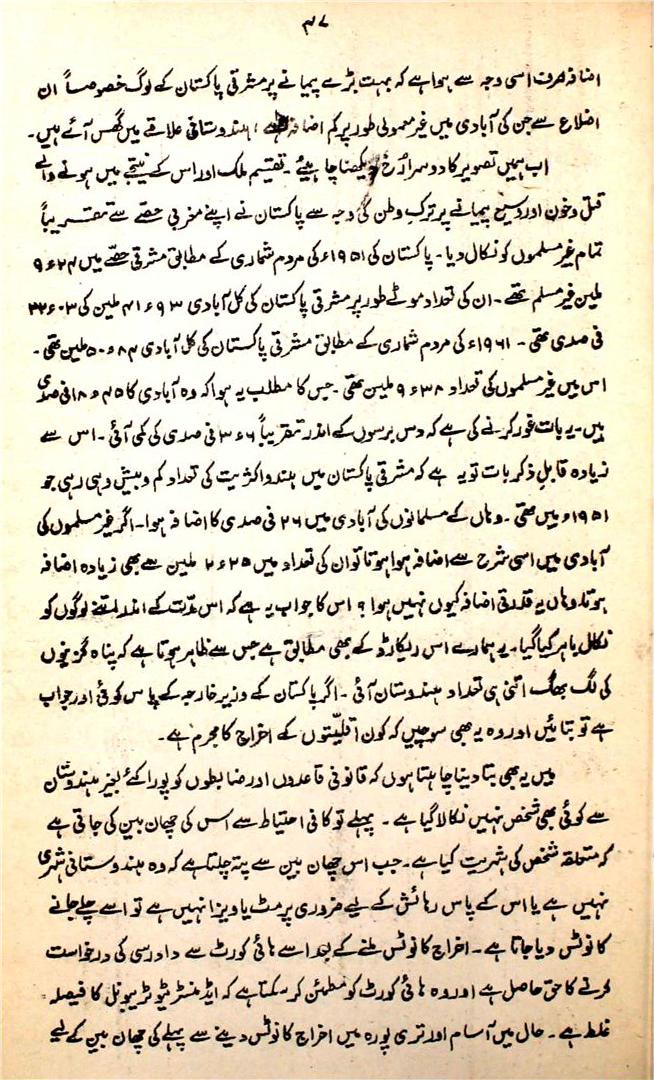 ۴۷
اضافہ صرف اسی وجہ سے ہوا ہے کہ بہت بڑے پیمانے پر مشرقی پاکستان کے لوگ خصوصاً ان
اضلاع سے جن کی آبادی میں غیر معمولی طور پر کم اضافہ ہے، ہندوستانی علاقے میں گھس آئے ہیں۔
اب ہمیں تصویر کا دوسرا رخ دیکھنا چاہیئے۔ تقسیم ملک اور اس کے نتیجے میں ہونے والے
قتل و خون اور وسیع پیمانے پر ترک وطن کی وجہ سے پاکستان نے اپنے مغربی حصے سے تقریباً
تمام غیر مسلموں کو نکال دیا۔ پاکستان کی ۱۹۵۱ء کی مردم شماری کے مطابق مشرقی حصے میں ۹ء۲۴
ملین غیر مسلم تھے۔ ان کی تعداد موٹے طور پر مشرقی پاکستان کی کل آبادی ۴۱ء۹۳ ملین کی ۲۲ء۰۳
فی صدی تھی۔ ۱۹۶۱ء کی مردم شماری کے مطابق مشرقی پاکستان کی کل آبادی ۵۰ء۸۴ ملین تھی۔
اس میں غیر مسلموں کی تعداد ۹ء۳۸ ملین تھی۔ جس کا مطلب یہ ہوا کہ وہ آبادی کا ۱۸ء۴۵ فی صدی
ہیں۔ یہ بات غور کرنے کی ہے کہ دس برسوں کے اندر تقریباً ۳ء۶ فی صدی کی کمی آئی۔ اس سے
زیادہ قابل ذکر بات تو یہ ہے کہ مشرقی پاکستان میں ہندو اکثریت کی تعداد کم و بیش وہی رہی جو
۱۹۵۱ء میں تھی۔ وہاں کے مسلمانوں کی آبادی میں ۲۶ فی صدی کا اضافہ ہوا۔ اگر غیر مسلموں کی
آبادی میں اسی شرح سے اضافہ ہوا ہوتا تو ان کی تعداد میں ۲ء۲۵ ملین سے بھی زیادہ اضافہ
ہوتا۔ وہاں یہ قدرتی اضافہ کیوں نہیں ہوا؟ اس کا جواب یہ ہے کہ اس مدت کے اندر اتنے لوگوں کو
نکال باہر کیا گیا۔ یہ ہمارے اس ریکارڈ کے بھی مطابق ہے جس سے ظاہر ہوتا ہے کہ پناہ گزینوں
کی لگ بھگ اتنی ہی تعداد ہندوستان آئی۔ اگر پاکستان کے وزیر خارجہ کے پاس کوئی اور جواب
ہے تو بتائیں اور وہ یہ بھی سوچیں کہ کون اقلیتوں کے اخراج کا مجرم ہے۔
میں یہ بھی بتا دینا چاہتا ہوں کہ قانونی قاعدوں اور ضابطوں کو پورا کئے بغیر ہندوستان
سے کوئی بھی شخص نہیں نکالا گیا ہے۔ پہلے تو کافی احتیاط سے اس کی چھان بین کی جاتی ہے
کہ متعلقہ شخص کی شہریت کیا ہے۔ جب اس چھان بین سے پتہ چلتا ہے کہ وہ ہندوستانی شہری
نہیں ہے یا اس کے پاس رہائش کے لیے ضروری پرمٹ یا ویزا نہیں ہے تو اسے چلے جانے
کا نوٹس دیا جاتا ہے۔ اخراج کا نوٹس ملنے کے بعد اسے ہائی کورٹ سے دادرسی کی درخواست
کرنے کا حق حاصل ہے اور وہ ہائی کورٹ کو مطمئن کر سکتا ہے کہ ایڈمنسٹریٹو ٹریبونل کا فیصلہ
غلط ہے۔ حال میں آسام اور تری پورہ میں اخراج کا نوٹس دینے سے پہلے کی چھان بین کے لیے